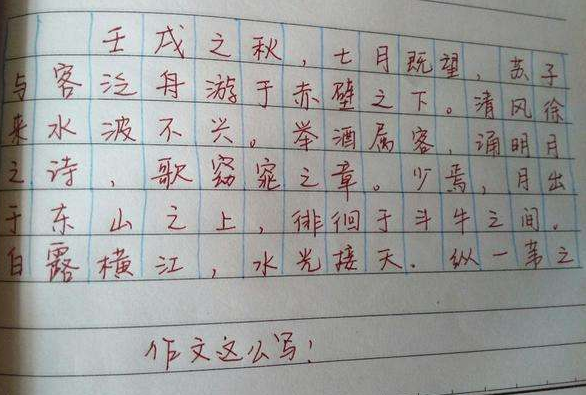 壬戌之秋,七月既望,苏子
与客泛舟游于赤壁之下。清风徐
来水波不兴。举酒属客,诵明月
之诗,歌窈窕之章。少焉,月出
于东山之上,徘徊于斗牛之间。
白露横江,水光接天.纵一苇之
作文这么写!